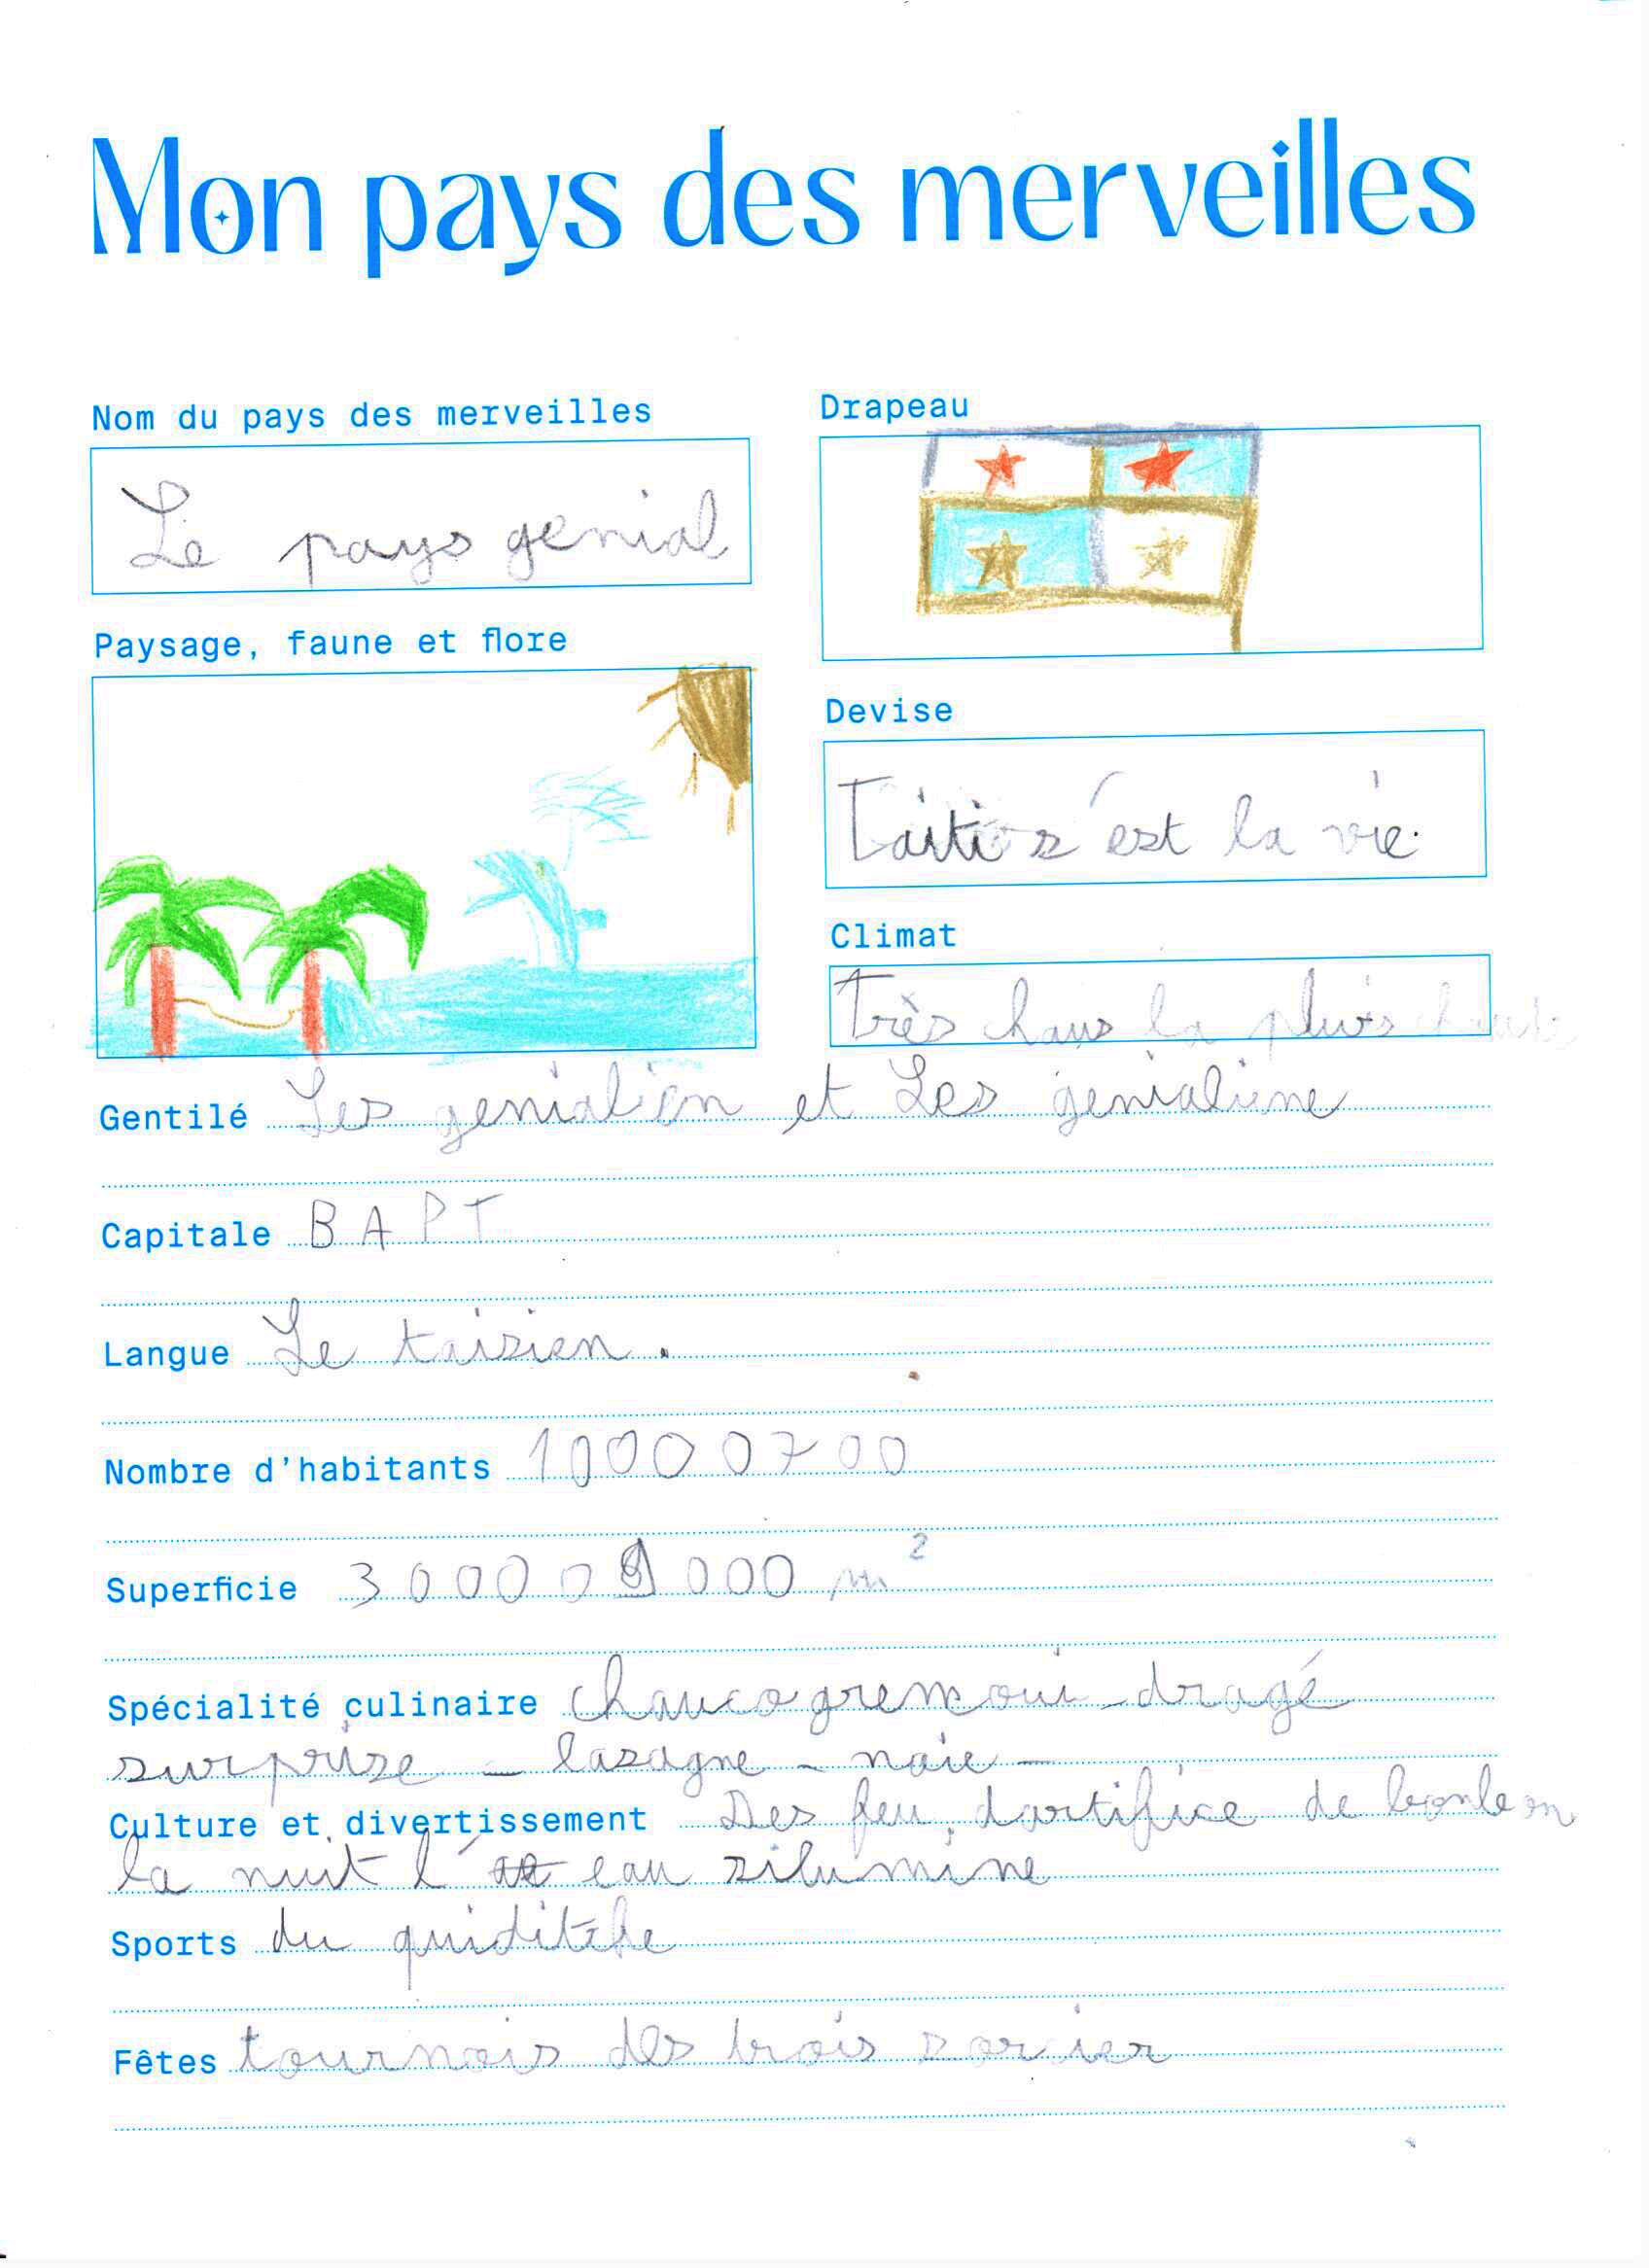 Mon pays des merveilles
Nom du pays des merveilles
Le pays genial
Drapeau
Paysage, faune et flore
Devise
Taiti s'est la vie.
Climat
Très chaus la pluis
Gentilé Les genialien et Les genialiene
Capitale BAPT
Langue Le taisien.
Nombre d'habitants 10000700
Superficie 30000 000 m²
Spécialité culinaire chaucogrenouui - dragé
surprise - lasagne - naie -
Culture et divertissement Des feu, dartifice de bonbon
la nuit l'eau silumine
Sports du quiditche
Fêtes tournois des trois sorcier